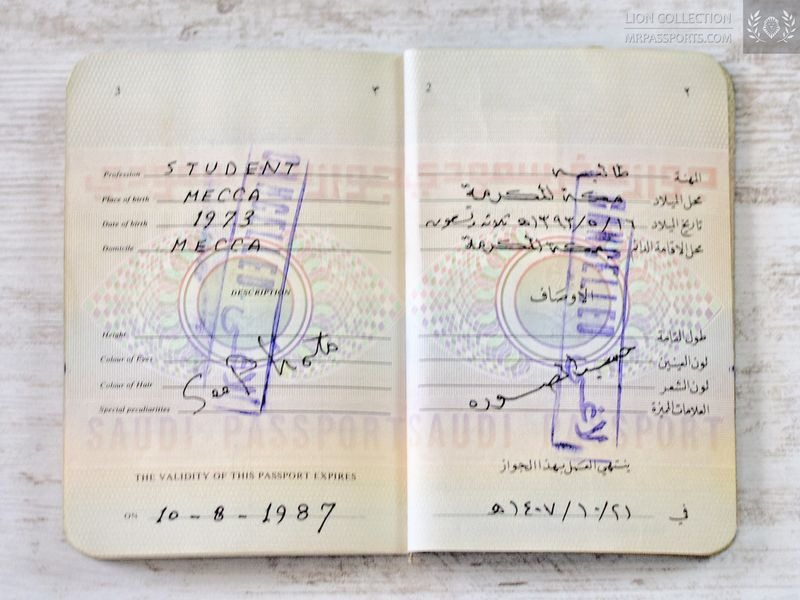 LION COLLECTION
MRPASSPORTS.COM
3 ٣
Profession STUDENT
Place of birth MECCA
Date of birth 1973
Domicile MECCA
DESCRIPTION
Height
Colour of Eyes
Colour of Hair
Special peculiarities
See Photo
CANCELLED
SAUDI PASSPORT
THE VALIDITY OF THIS PASSPORT EXPIRES
ON 10-8-1987
2 ٢
المهنة
محل الميلاد مكة المكرمة
تاريخ الميلاد ١٣٩٣/٥/١٦هـ
محل الاقامة الدائم مكة المكرمة
الاوصاف
طول القامة
لون العينين
لون الشعر
العلامات المميزة
حسب الصورة
CANCELLED
SAUDI PASSPORT
ينتهي العمل بهذا الجواز
في ١٤٠٧/١٠/٢١هـ